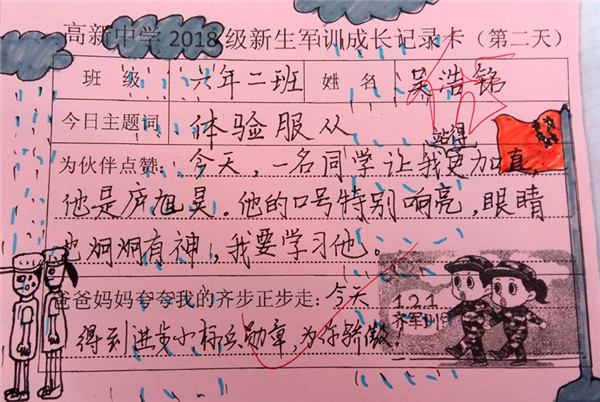 高新中学2018级新生军训成长记录卡（第二天）
班级 六年二班 姓名 吴浩铭
今日主题词 体验服从
为伙伴点赞：今天，一名同学让我觉得更加真，
他是庐旭昊。他的口号特别响亮，眼睛
也炯炯有神，我要学习他。
爸爸妈妈夸夸我的齐步正步走：今天
得到进步小标兵勋章，为你骄傲！
121
齐军训